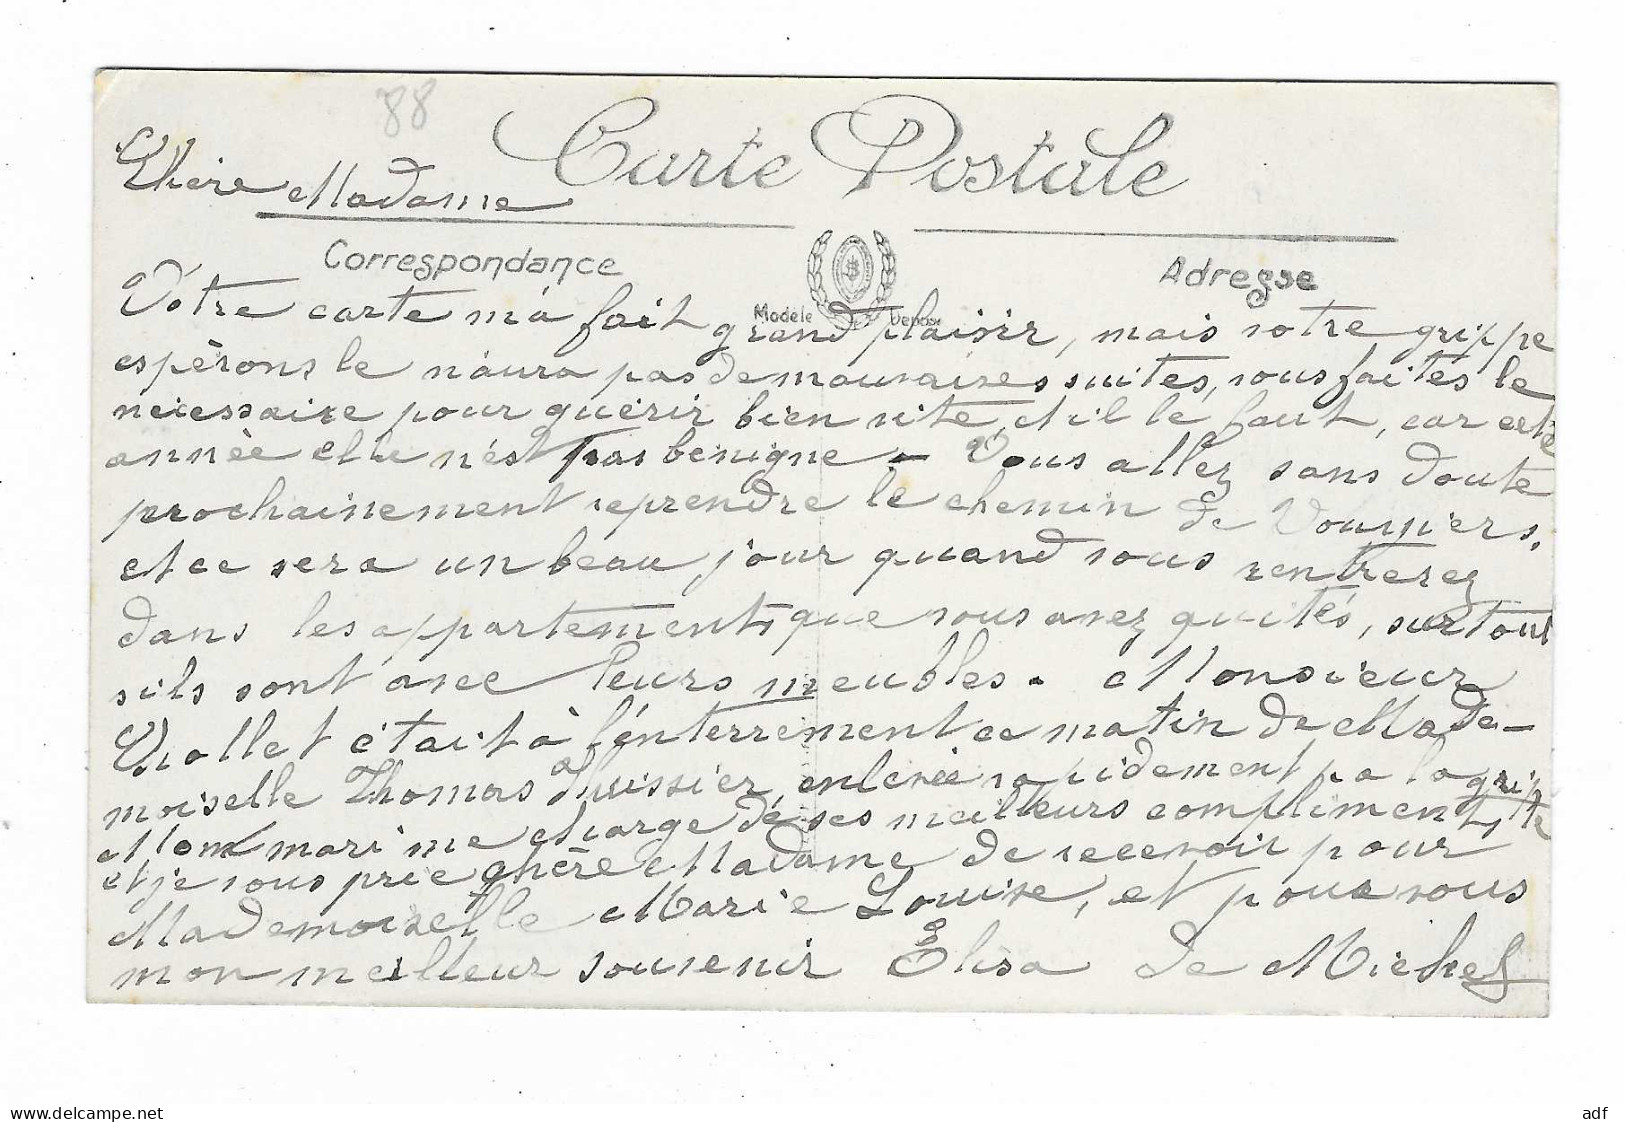 88
Carte Postale
Chère Madame
Correspondance
Adresse
Modèle Déposé
Votre carte m'a fait grand plaisir, mais votre grippe
espèrons le n'aura pas de mauvaises suites, vous faites le
nécessaire pour guérir bien vite, et il le faut, car cette
année elle n'est pas bénigne - Vous allez sans doute
prochainement reprendre le chemin de Vouziers,
et ce sera un beau jour quand vous rentrerez
dans les appartements que vous avez quités, surtout
s'ils sont avec leurs meubles. Monsieur
était à l'enterrement ce matin de Made-
moiselle Thomas enlevée rapidement pa la grippe
Mon mari me charge de ses meilleurs compliments,
et je vous prie chère Madame de recevoir pour
Mademoiselle Marie Louise, et pour vous
mon meilleur souvenir Elisa de Michel
www.delcampe.net
adf